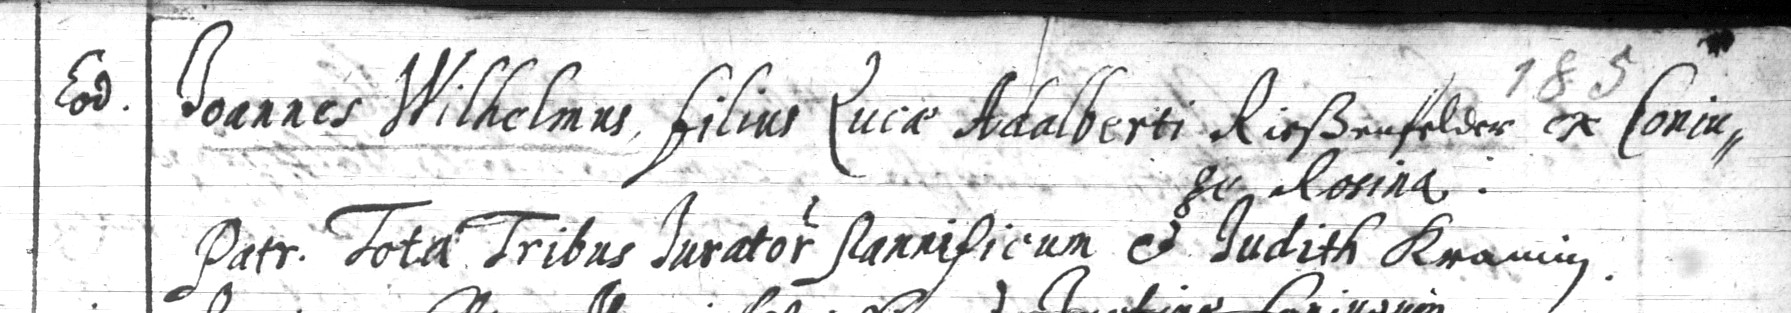 185
Eod. Joannes Wilhelmus, filius Lucæ Adalberti Rießenfelder ex Coniu„
ge Rosina.
Patr. Tota Tribus Jurator Pannificum & Judith Kramin.